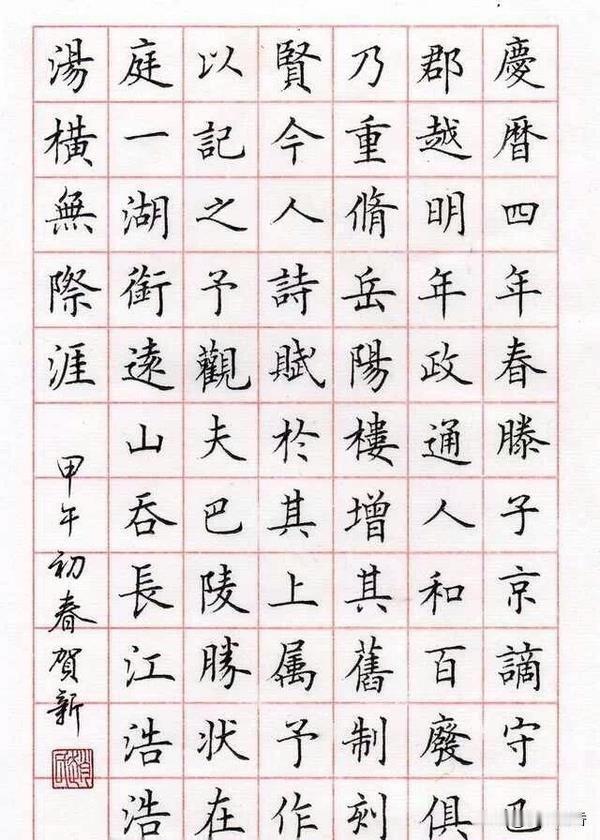 慶曆四年春滕子京謫守巴
郡越明年政通人和百廢俱
乃重脩岳陽樓增其舊制刻
賢今人詩賦於其上属予作
以記之予觀夫巴陵勝狀在
庭一湖銜遠山吞長江浩浩
湯橫無際涯
甲午初春賀新